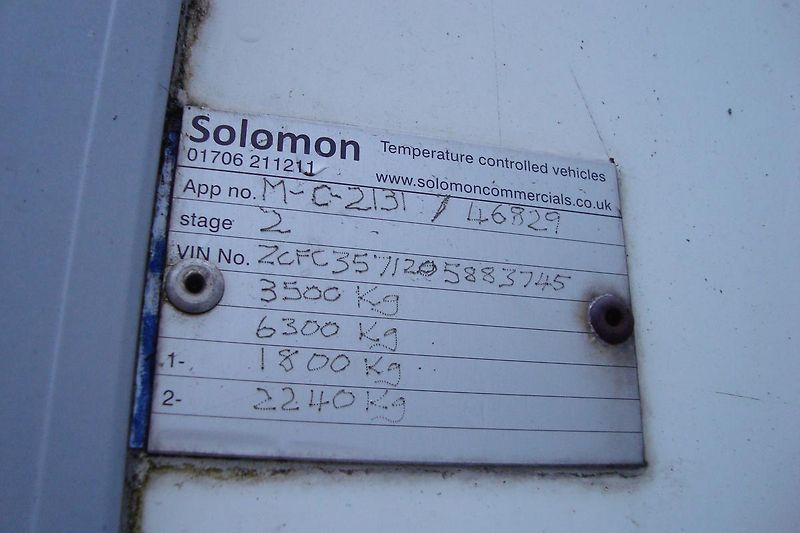 Solomon Temperature controlled vehicles
01706 211211 www.solomoncommercials.co.uk
App no. M-C-2131 / 46829
stage 2
VIN No. ZCFC3571205883745
3500 Kg
6300 Kg
1- 1800 Kg
2- 2240 Kg